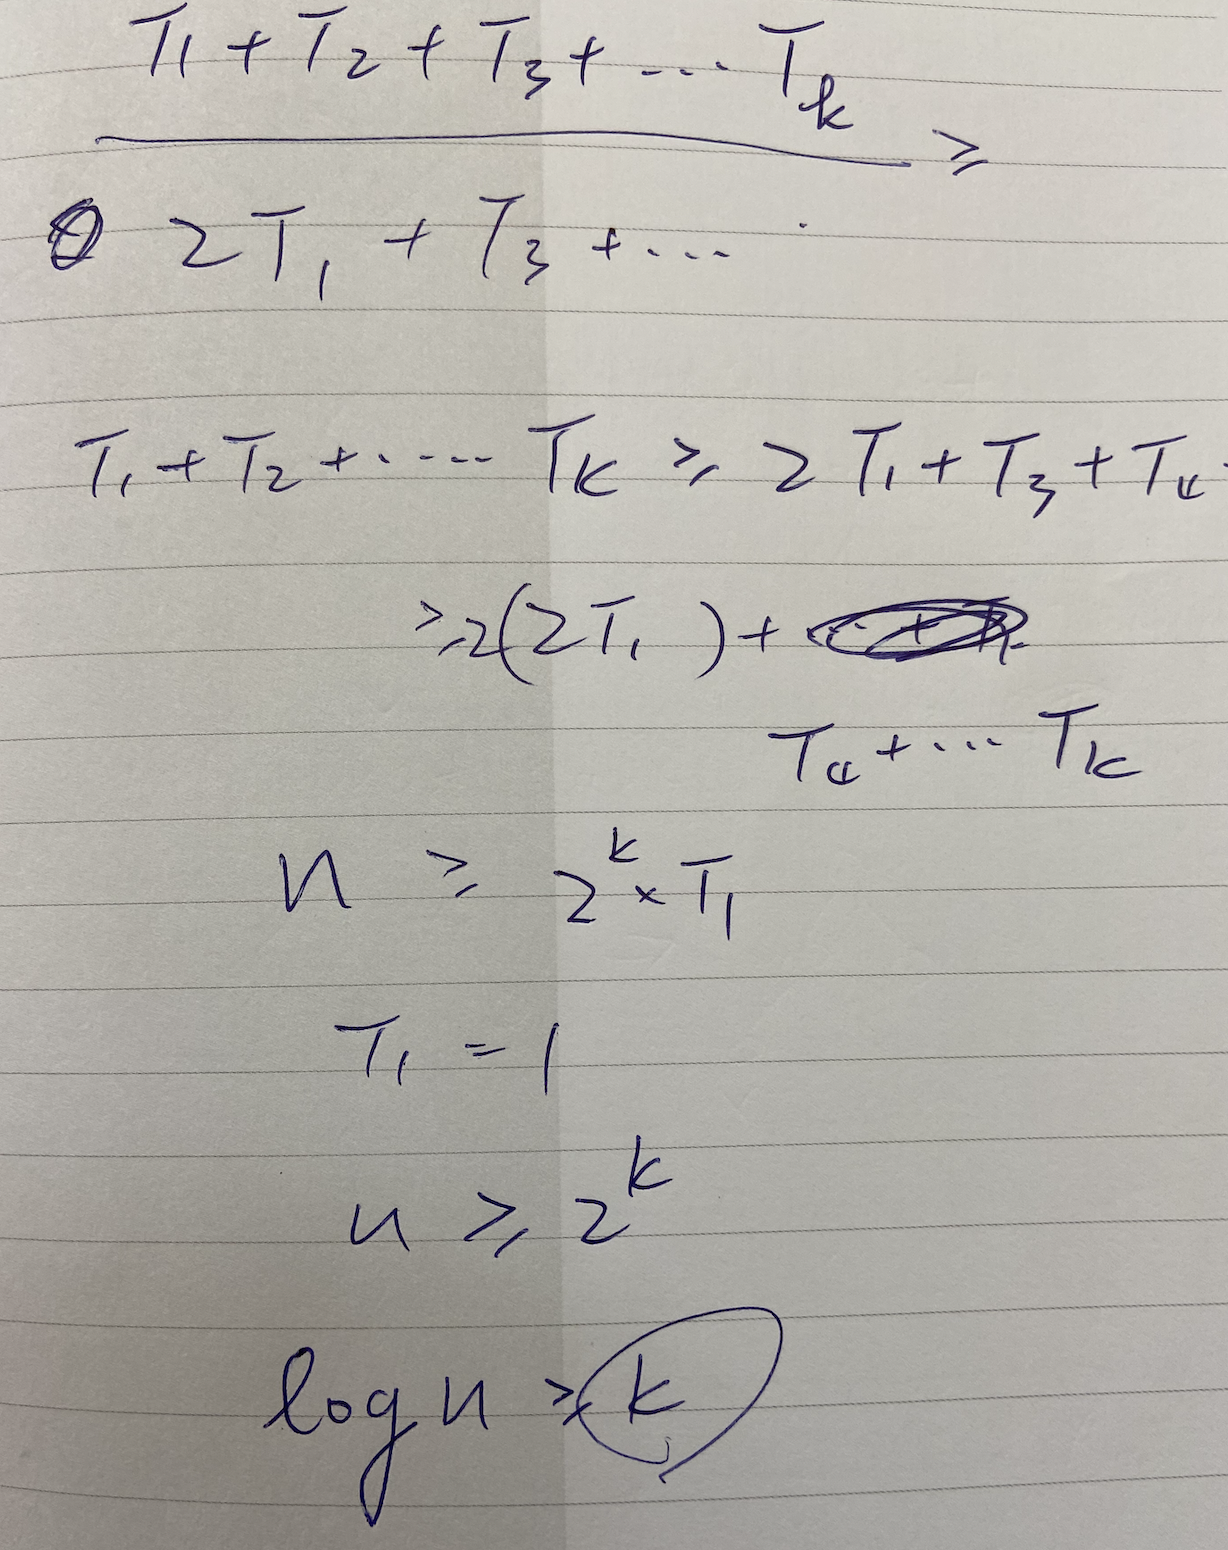 T₁ + T₂ + T₃ + ... Tₖ
≥
2T₁ + T₃ + ...
T₁ + T₂ + ..... Tₖ ≥ 2T₁ + T₃ + T₄
≥ 2(2T₁) +
T₄ + ... Tₖ
n ≥ 2ᵏ × T₁
T₁ = 1
n ≥ 2ᵏ
log n ≥ k